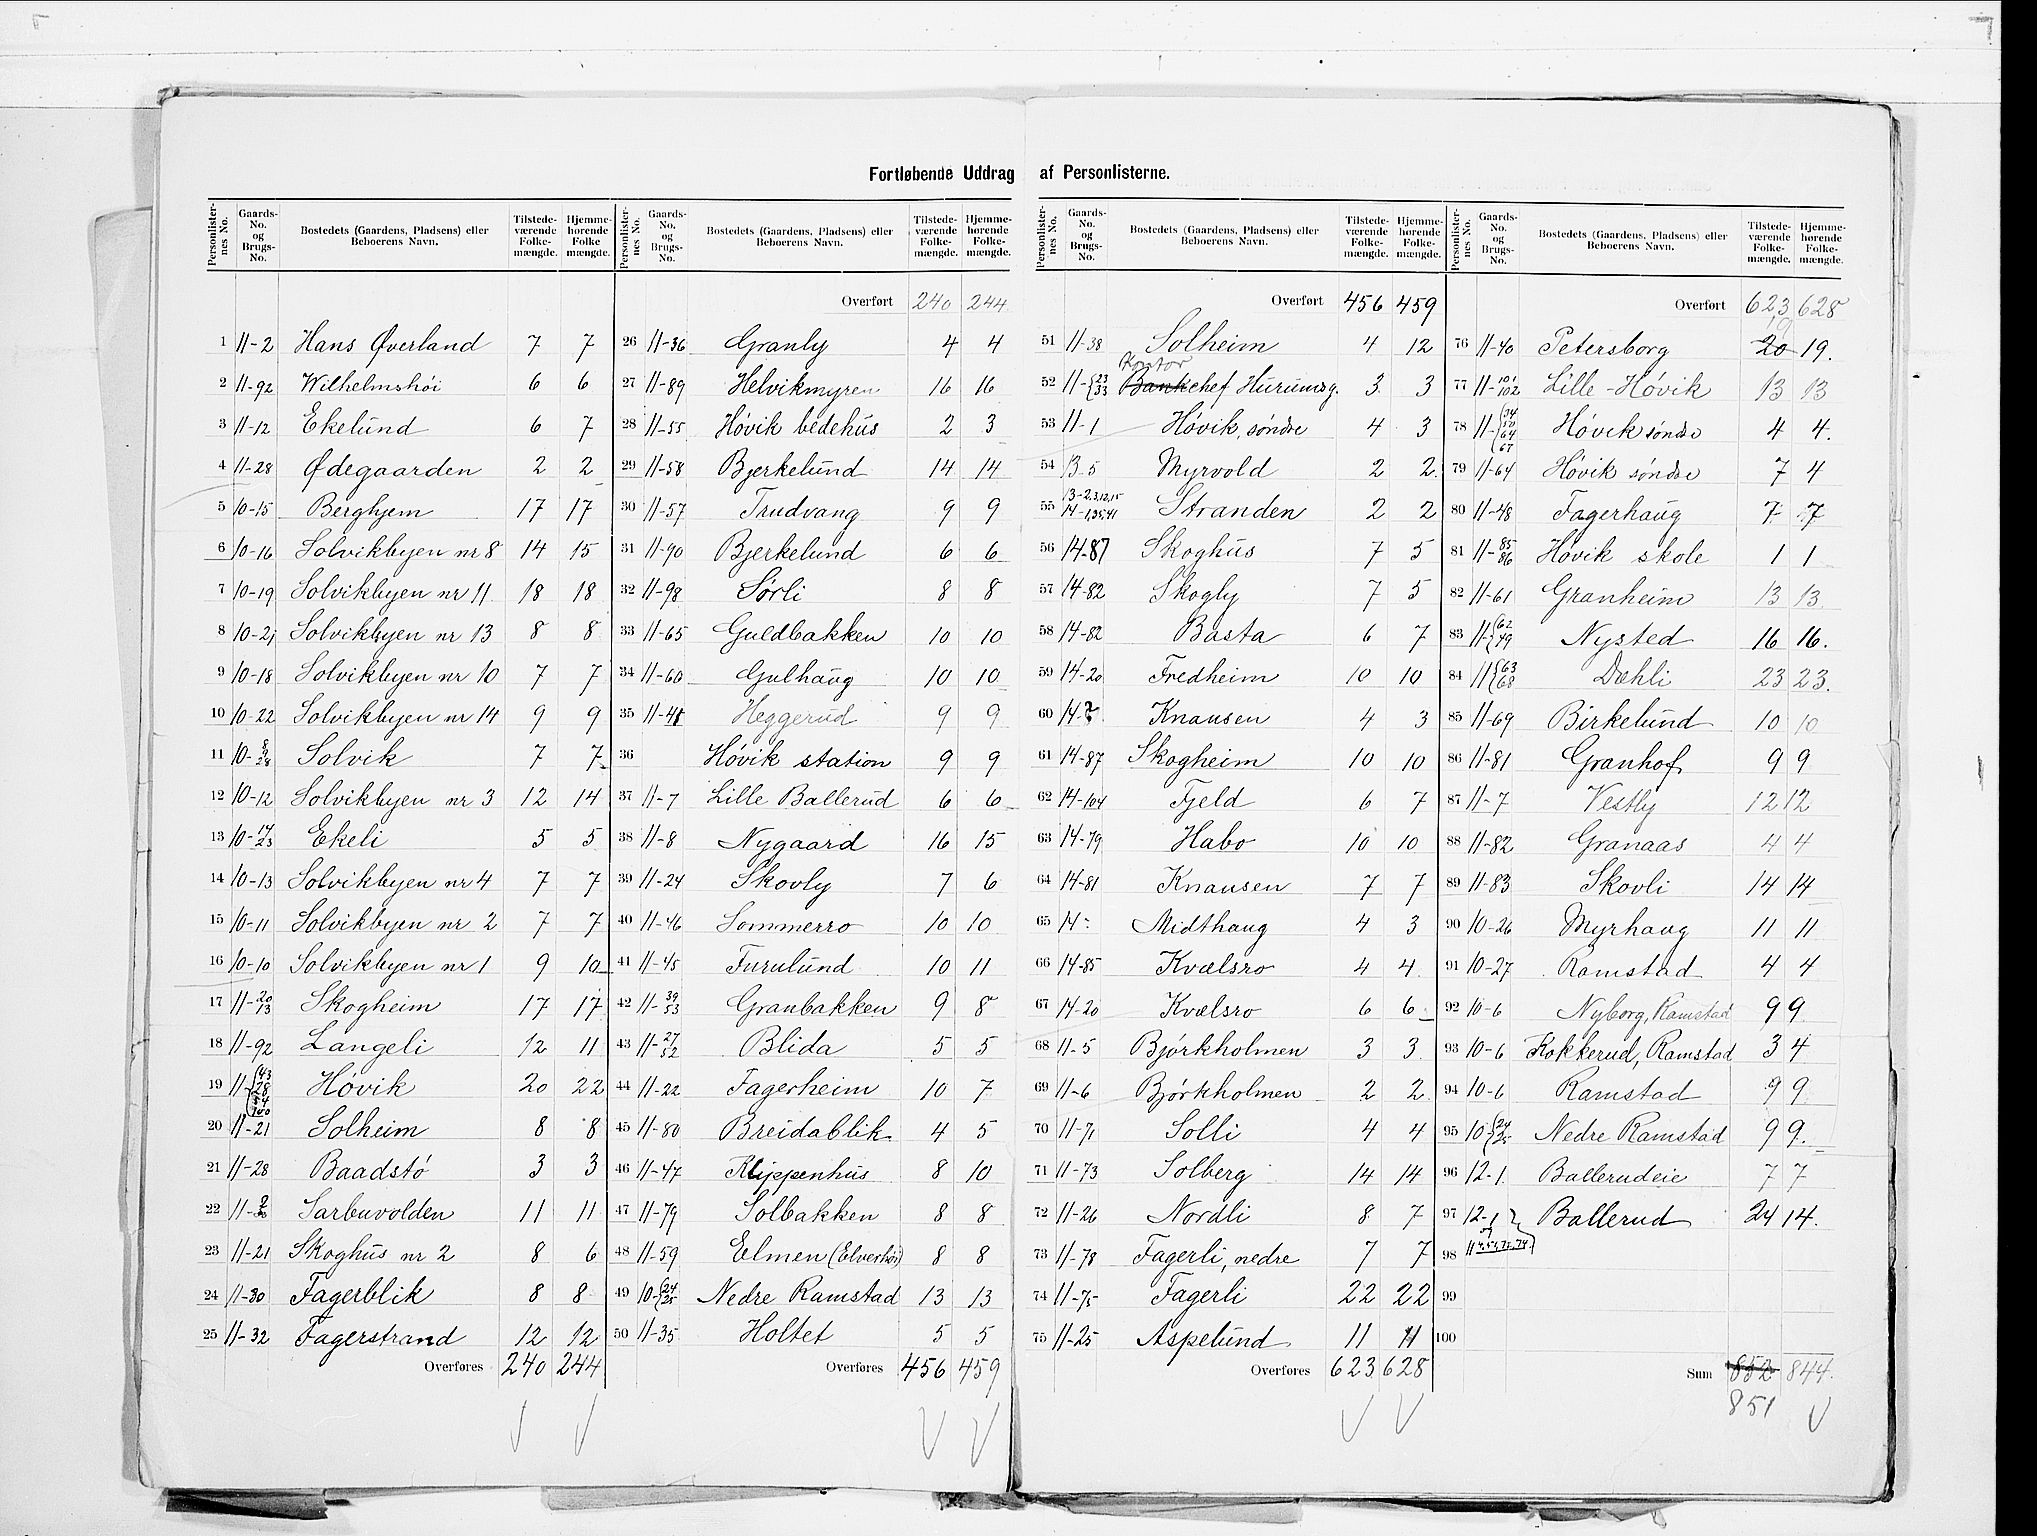 Fortløbende Uddrag af Personlisterne.
Personlister-nes No. | Gaards-No. og Brugs-No. | Bostedets (Gaardens, Pladsens) eller Beboerens Navn. | Tilstede-værende Folke-mængde. | Hjemme-hørende Folke mængde.
1 11-2 Hans Øverland 7 7
2 11-92 Wilhelmshöi 6 6
3 11-12 Ekelund 6 7
4 11-28 Ødegaarden 2 2
5 10-15 Berghjem 17 17
6 10-16 Solvikbyen nr 8 14 15
7 10-19 Solvikbyen nr 11 18 18
8 10-21 Solvikbyen nr 13 8 8
9 10-18 Solvikbyen nr 10 7 7
10 10-22 Solvikbyen nr 14 9 9
11 10- Solvik 7 7
12 10-12 Solvikbyen nr 3 12 14
13 10-17 23 Ekeli 5 5
14 10-13 Solvikbyen nr 4 7 7
15 10-11 Solvikbyen nr 2 7 7
16 10-10 Solvikbyen nr 1 9 10
17 11-20 13 Skogheim 17 17
18 11-92 Langeli 12 11
19 11- Høvik 20 22
20 11-21 Solheim 8 8
21 11-28 Baadstö 3 3
22 11- Sarbuvolden 11 11
23 11-21 Skoghus nr 2 8 6
24 11-30 Fagerblik 8 8
25 11-32 Fagerstrand 12 12
Overføres 240 244
Personlister-nes No. | Gaards-No. og Brugs-No. | Bostedets (Gaardens, Pladsens) eller Beboerens Navn. | Tilstede-værende Folke-mængde. | Hjemme-hørende Folke-mængde.
Overført 240 244
26 11-36 Granly 4 4
27 11-89 Helvikmyren 16 16
28 11-55 Høvik bedehus 2 3
29 11-58 Bjerkelund 14 14
30 11-57 Trudvang 9 9
31 11-90 Bjerkelund 6 6
32 11-98 Sørli 8 8
33 11-65 Guldbakken 10 10
34 11-60 Gulhaug 10 10
35 11-41 Heggerud 9 9
36 Høvik station 9 9
37 11-7 Lille Ballerud 6 6
38 11-8 Nygaard 16 15
39 11-24 Skovly 7 6
40 11-46 Sommerro 10 10
41 11-45 Furulund 10 11
42 11-39 53 Granbakken 9 8
43 11-27 52 Blida 5 5
44 11-22 Fagerheim 10 7
45 11-80 Breidablik 4 5
46 11-47 Klippenhus 8 10
47 11-79 Solbakken 8 8
48 11-59 Elmen (Elverhöi) 8 8
49 10-{24 25 Nedre Ramstad 13 13
50 11-35 Holtet 5 5
Overføres 456 459
Personlister-nes No. | Gaards-No. og Brugs-No. | Bostedets (Gaardens, Pladsens) eller Beboerens Navn. | Tilstede-værende Folke-mængde. | Hjemme-hørende Folke-mængde.
Overført 456 459
51 11-38 Solheim 4 12
Kontor
52 11-{23 33 Bankchef Hurumsg. 3 3
53 11-1 Høvik, søndre 4 3
54 13-5 Myrvold 2 2
55 13-2,3,12,15 14-1,35,41 Stranden 2 2
56 14-87 Skoghus 7 5
57 14-82 Skogly 7 5
58 14-82 Basta 6 7
59 14-20 Fredheim 10 10
60 14- Knausen 4 3
61 14-87 Skogheim 10 10
62 14-104 Fjeld 6 7
63 14-79 Habo 10 10
64 14-81 Knausen 7 7
65 14- Midthaug 4 3
66 14-85 Kvælsro 4 4
67 14-20 Kvælsro 6 6
68 11-5 Bjørkholmen 3 3
69 11-6 Bjørkholmen 2 2
70 11-71 Solli 4 4
71 11-73 Solberg 14 14
72 11-26 Nordli 8 7
73 11-78 Fagerli, nedre 7 7
74 11-75 Fagerli 22 22
75 11-25 Aspelund 11 11
Overføres 623 628
Personlister-nes No. | Gaards-No. og Brugs-No. | Bostedets (Gaardens, Pladsens) eller Beboerens Navn. | Tilstede-værende Folke-mængde. | Hjemme-hørende Folke-mængde.
Overført 623 628
19
76 11-40 Petersborg 20 19.
77 11-101 102 Lille-Høvik 13 13
78 11-{34 50 64 67 Høvik søndre 4 4.
79 11-64 Høvik søndre 7 4
80 11-48 Fagerhaug 7 7
81 11-85 86 Høvik skole 1 1
82 11-61 Granheim 13 13
83 11-{62 49 Nysted 16 16.
84 11{63 68 Dæhli 23 23.
85 11-69 Birkelund 10 10
86 11-81 Granhof 9 9
87 11-7 Vestly 12 12
88 11-82 Granaas 4 4
89 11-83 Skovli 14 14
90 10-26 Myrhaug 11 11
91 10-27 Ramstad 4 4
92 10-6 Nyborg, Ramstad 9 9
93 10-6 Kokkerud, Ramstad 3 4
94 10-6 Ramstad 9 9
95 10{24 25 Nedre Ramstad 9 9.
96 12-1 Ballerudeie 7 7
97 12-1 Ballerud 24 14.
98
99
100
Sum 852 844.
851